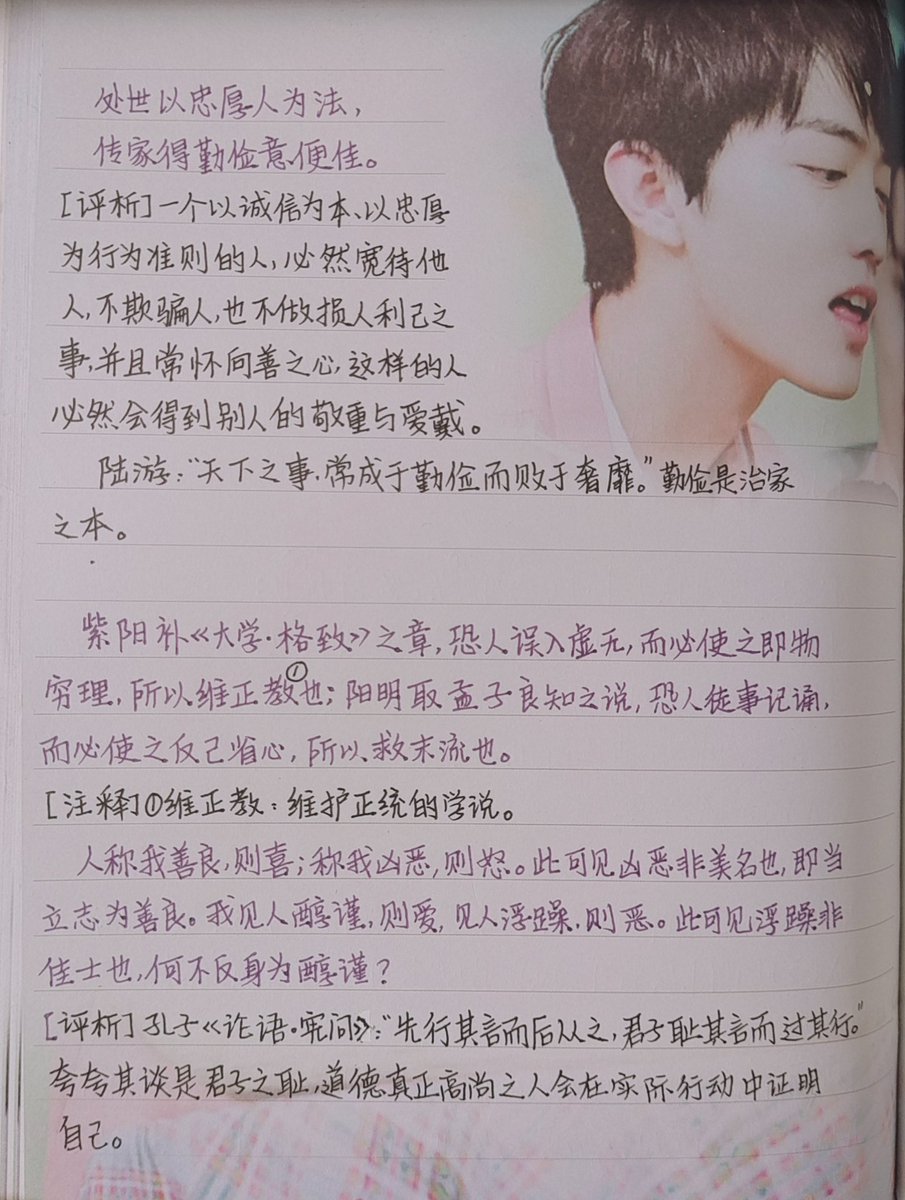 处世以忠厚人为法，
传家得勤俭意便佳。
[评析]一个以诚信为本、以忠厚
为行为准则的人，必然宽待他
人，不欺骗人，也不做损人利己之
事，并且常怀向善之心，这样的人
必然会得到别人的敬重与爱戴。
陆游：“天下之事，常成于勤俭而败于奢靡。”勤俭是治家
之本。
紫阳补《大学·格致》之章，恐人误入虚无，而必使之即物
穷理，所以维正教①也；阳明取孟子良知之说，恐人徒事记诵，
而必使之反己省心，所以救末流也。
[注释]①维正教：维护正统的学说。
人称我善良，则喜；称我凶恶，则怒。此可见凶恶非美名也，即当
立志为善良。我见人醇谨，则爱，见人浮躁，则恶。此可见浮躁非
佳士也，何不反身为醇谨？
[评析]孔子《论语·宪问》：“先行其言而后从之，君子耻其言而过其行。”
夸夸其谈是君子之耻，道德真正高尚之人会在实际行动中证明
自己。